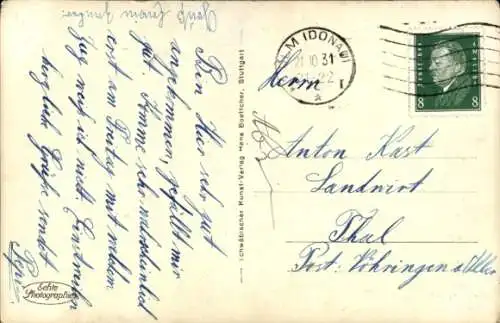 Gruß
Bin Hier sehr gut
angekommen, gefällt mir
gut. Komme sehr wahrscheinlich
erst am Freitag mit welchem
Zug weiß ich nicht.
herzliche Grüße sendet
Echte
Photographie
Schwäbischer Kunst-Verlag Hans Boettcher, Stuttgart
ULM (DONAU)
10 31
Herrn
Anton Kast
Landwirt
Thal
Post: Vöhringen a/Iller
DEUTSCHES REICH
8 8